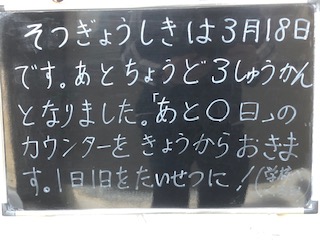 そつぎょうしきは3月18日
です。あとちょうど3しゅうかん
となりました。「あと〇日」の
カウンターをきょうからおきま
す。1日1日をたいせつに!(学校